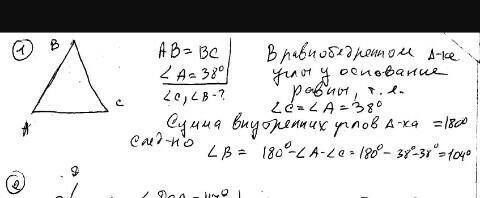 1 B AB = BC В равнобедренном Δ-ке
∠A = 38° углы у основание
∠C, ∠B - ? равны, т.е.
∠C = ∠A = 38°
A C
Сумма внутренних углов Δ-ка = 180°
след-но
∠B = 180° - ∠A - ∠C = 180° - 38° - 38° = 104°
2 B